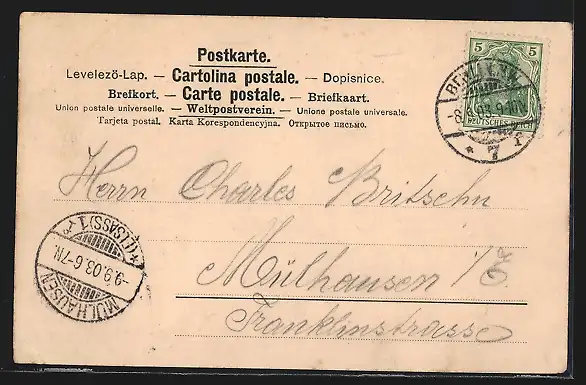 Postkarte.
Levelező-Lap. — Cartolina postale. — Dopisnice.
Brefkort. — Carte postale. — Briefkaart.
Union postale universelle. — Weltpostverein. — Unione postale universale.
Tarjeta postal. Karta Korespondencyjna. Открытое письмо.
5 5
DEUTSCHES REICH
BERLIN
* 7 f
Herrn Charles Britschn
Mülhausen i/E
Franklinstrasse
MÜLHAUSEN
-9.9.03.6-7N.
* (ELSASS) 1